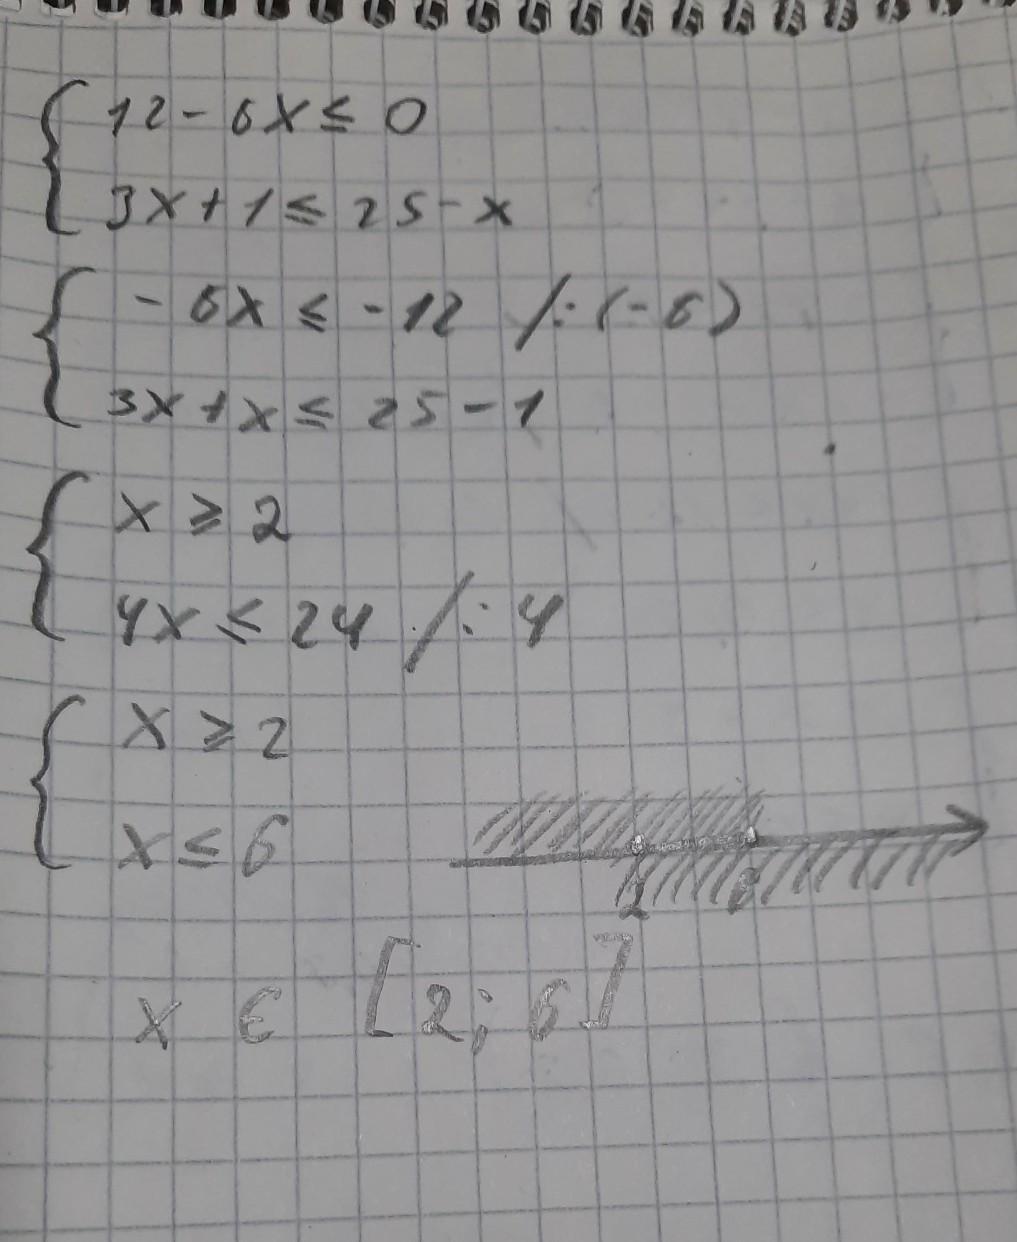 12 - 6x ≤ 0
3x + 1 ≤ 25 - x
- 6x ≤ -12 /:(-6)
3x + x ≤ 25 - 1
x ≥ 2
4x ≤ 24 /:4
x ≥ 2
x ≤ 6
2 6
x ∈ [2; 6]